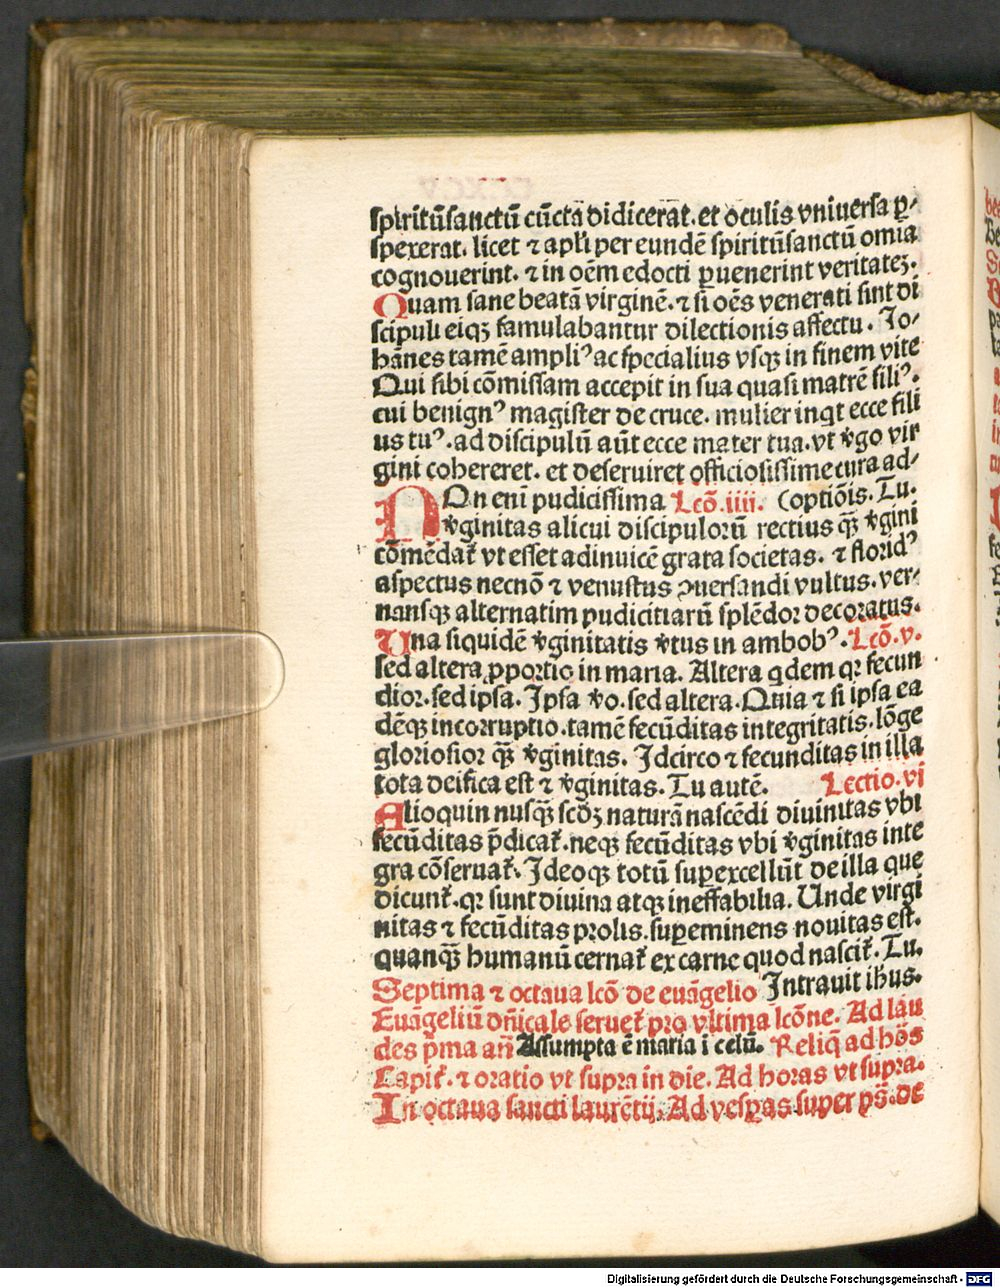 spiritūsanctū cūcta didicerat. et oculis vniuersa ꝑ⸗
spexerat. licet ⁊ apl̓i per eundē spiritūsanctū omīa
cognouerint. ⁊ in oēm edocti ꝑuenerint veritateꝫ.
Quam sane beatā virginē. ⁊ si oēs venerati sint di
scipuli eiqꝫ famulabantur dilectionis affectu. Jo⸗
hānes tamē ampliꝰ ac specialius vsqꝫ in finem vite
Qui sibi cōmissam accepit in sua quasi matrē filiꝰ.
cui benignꝰ magister de cruce. mulier inqt ecce fili
us tuꝰ. ad discipulū aūt ecce mater tua. vt v̓go vir
gini cohereret. et deseruiret officiosissime cura ad⸗
NOn eni pudicissima Lcō. iiii. (optiōis. Tu.
v̓ginitas alicui discipulorū rectius qꝫ̄ v̓gini
cōmēdat̉ vt esset adinuicē grata societas. ⁊ floridꝰ
aspectus necnō ⁊ venustus ꝯuersandi vultus. ver⸗
nansqꝫ alternatim pudicitiarū splēdor decoratus.
Una siquidē v̓ginitatis v̓tus in ambobꝰ. Lcō. v.
sed altera ꝓportio in maria. Altera qdem qꝛ fecun
dior. sed ipsa. Ipsa v̓o. sed altera. Quia ⁊ si ipsa ea
dēqꝫ incorruptio. tamē fecūditas integritatis. lōge
gloriosior qꝫ̄ v̓ginitas. Idcirco ⁊ fecunditas in illa
tota deifica est ⁊ v̓ginitas. Tu autē. Lectio. vi
Alioquin nusqꝫ̄ scd̄ꝫ naturā nascēdi diuinitas vbi
fecūditas p̄dicat̉. neqꝫ fecūditas vbi v̓ginitas inte
gra cōseruat̉. Ideoqꝫ totū suꝑexcellūt de illa que
dicunt̉. qꝛ sunt diuina atqꝫ ineffabilia. Unde virgi
nitas ⁊ fecūditas prolis. suꝑeminens nouitas est.
quanqꝫ̄ humanū cernat̉ ex carne quod nascit̉. Tu.
Septima ⁊ octaua lcō de euāgelio Intrauit ihus.
Euāgeliū dn̄icale seruet̉ pro vltima lcōne. Ad lau
des p̄ma an̄ Assumpta ē maria ī celū. Reliq̄ ad hōs
Capit̉. ⁊ oratio vt supra in die. Ad horas vt supra.
In octaua sancti laurētij. Ad vesꝑas super ps̄. de
Digitalisierung gefördert durch die Deutsche Forschungsgemeinschaft - DFG